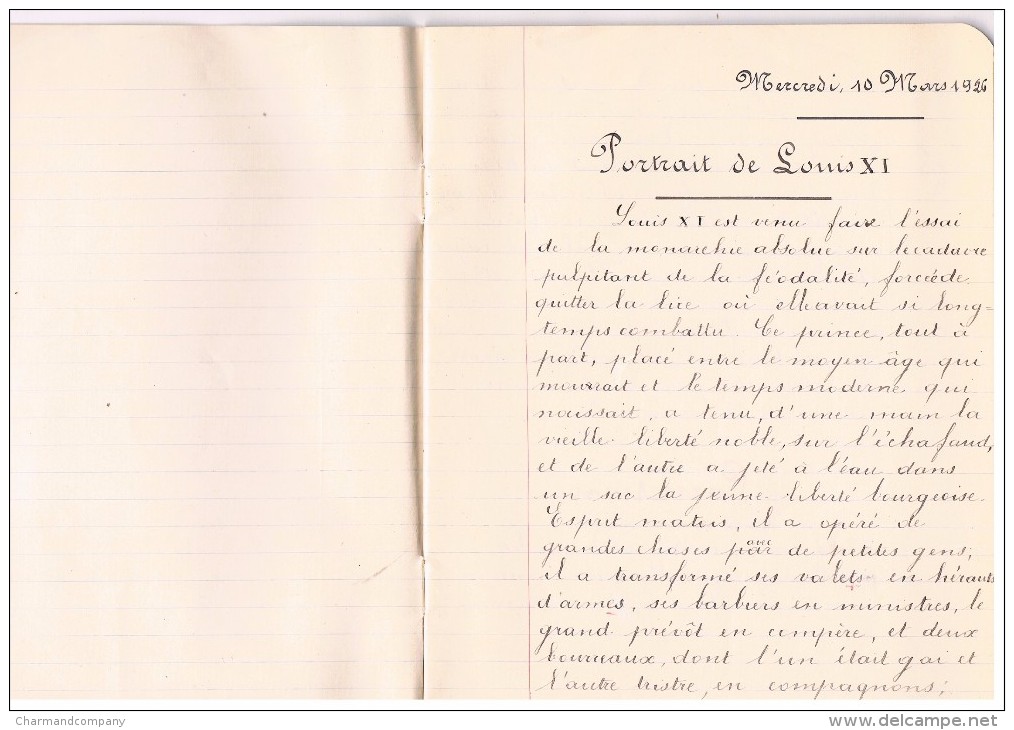 Mercredi, 10 Mars 1926
Portrait de Louis XI
Louis XI est venu faire l'essai
de la monarchie absolue sur le cadavre
palpitant de la féodalité, forcée de
quitter la lice où elle avait si long=
temps combattu. Ce prince, tout à
part, placé entre le moyen âge qui
mourrait et le temps moderne qui
naissait, a tenu, d'une main la
vieille liberté noble, sur l'échafaud,
et de l'autre a jeté à l'eau dans
un sac la jeune liberté bourgeoise.
Esprit matois, il a opéré de
avec
grandes choses par de petites gens;
il a transformé ses valets en hérauts
d'armes, ses barbiers en ministres, le
grand prévôt en compère, et deux
bourreaux, dont l'un était gai et
l'autre tristre, en compagnons;
Charmandcompany
www.delcampe.net